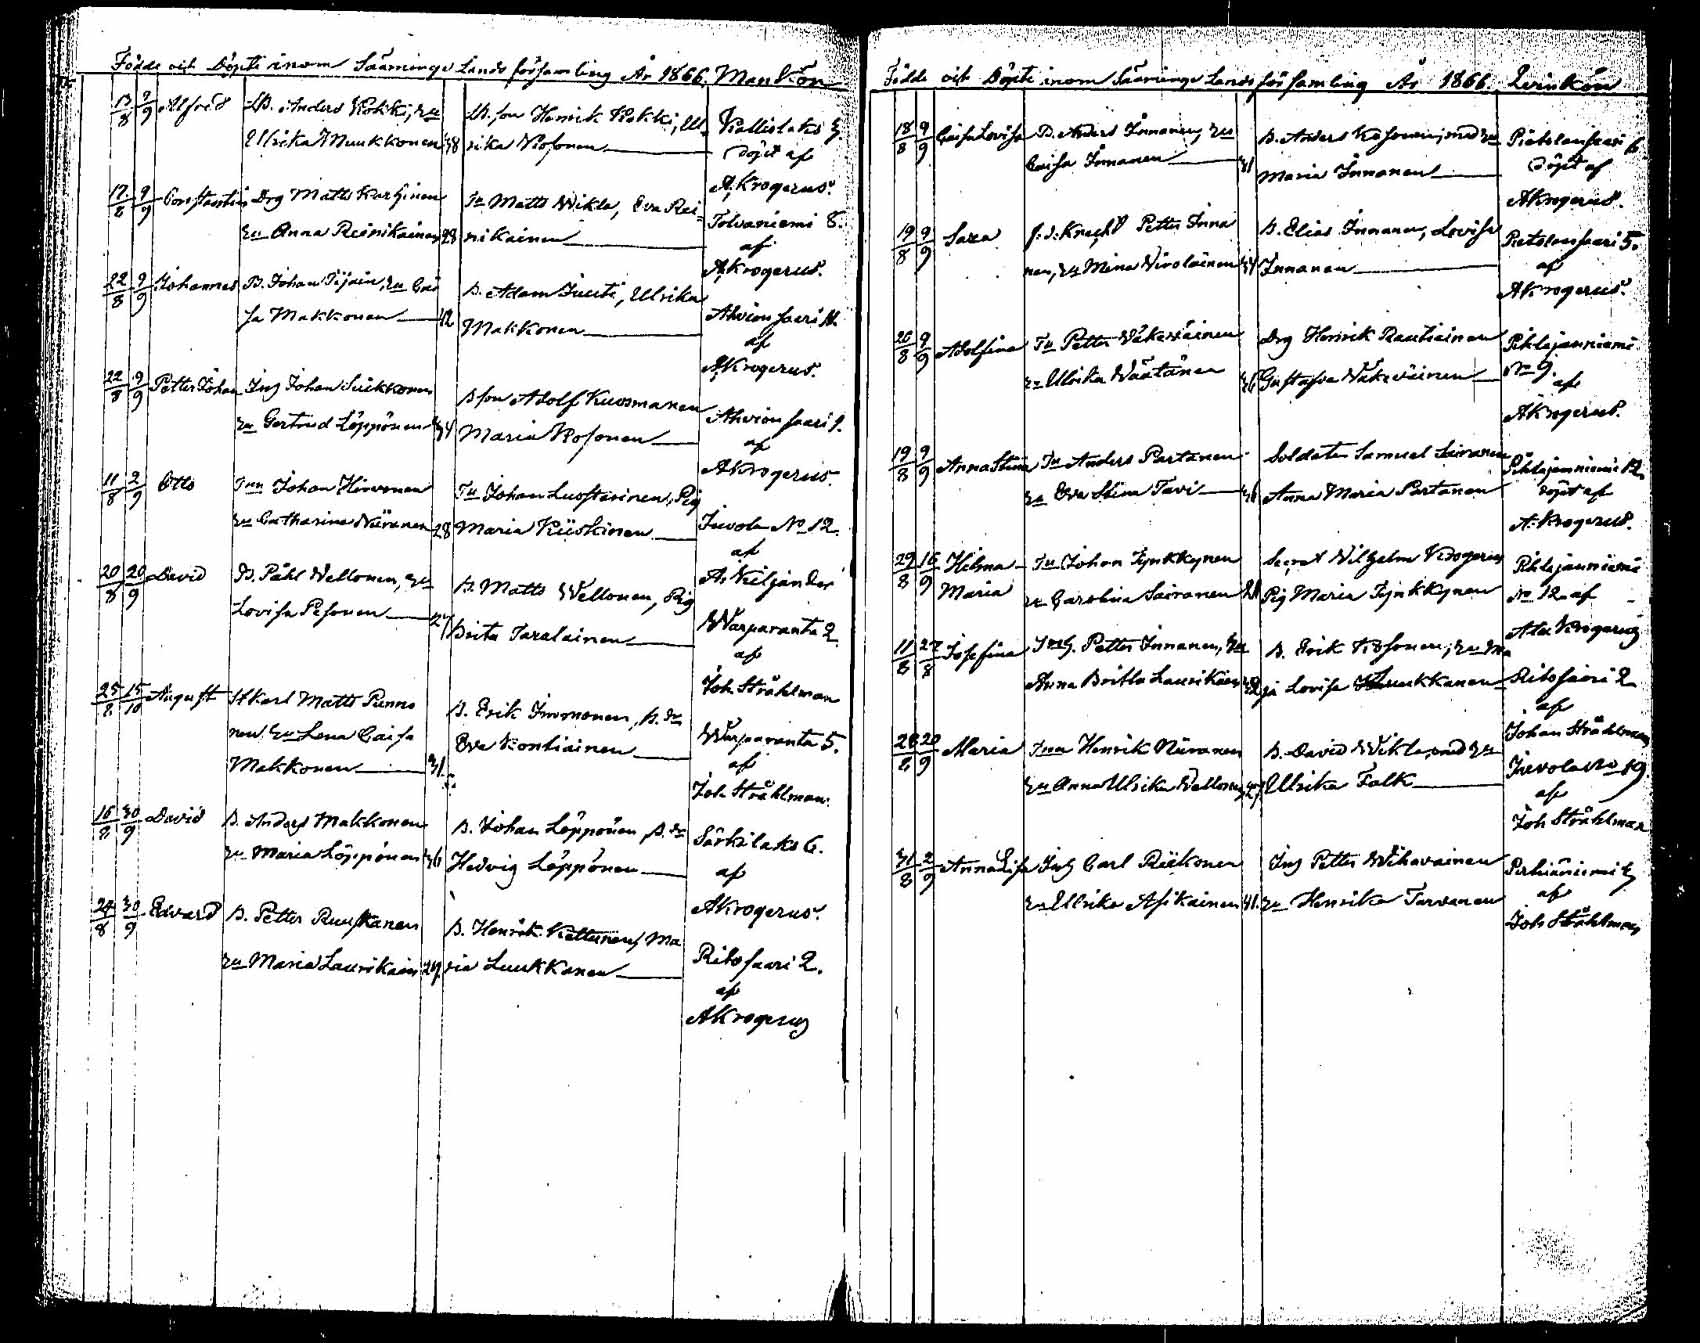 Födde och Döpte inom Sääminge Landsförsamling År 1866. Mankön
13/8 9/9 Alfred B. Anders Kokki, hu
Ullrika Muukkonen 38
B. son Henrik Kokki, Ul-
rika Kosonen
Kallislaks 3
döpt af
A. Krogerus.
17/8 9/9 Constantin Drg Matts Karhinen
hu Anna Reinikainen 28
Tu Matts Wikla, Eva Rei-
nikainen
Tolvaniemi 8.
af
A. Krogerus.
22/8 9/9 Johannes B. Johan Tijain, hu Cai
sa Makkonen 42
B. Adam Juuti, Ulrika
Makkonen
Ahvionsaari 11.
af
A. Krogerus.
22/8 9/9 Petter Johan Ing Johan Suikkonen
hu Gertrud Löppönen 34
B son Adolf Kuosmanen
Maria Kosonen
Ahvionsaari 1.
af
A Krogerus.
11/8 2/9 Otto Inn Johan Hirvonen
hu Catharina Niiranen 28
Tu Johan Luostarinen, Pig
Maria Kiiskinen
Juvola No 12.
af
A. Kiljander
20/8 20/9 David B. Påhl Wellonen, hu
Lovisa Pesonen 27
B. Matts Wellonen, Pig
Brita Taralainen
Warparanta 2
af
Joh Stråhlman
25/8 15/10 August Stkarl Matts Punno
nen hu Lena Caisa
Makkonen 31
B. Erik Immonen, B. hu
Eva Kontiainen
Warparanta 5.
af
Joh Stråhlman.
16/8 30/9 David B. Anders Makkonen
hu Maria Löppönen 36
B. Johan Löppönen, B. dr
Hedvig Löppönen
Särkilaks 6.
af
A Krogerus.
24/8 30/9 Edvard B. Petter Ruuskanen
hu Maria Laurikain 24
B. Henrik Kettunen, Ma
ria Luukkanen
Ritosaari 2.
af
A Krogerus
Födde och Döpte inom Sääminge Landsförsamling År 1866. Qvinkön
18/8 9/9 Caisa Lovisa B. Anders Innanen, hu
Caisa Innanen 31
B. Anders Kosonen, med hu
Maria Innanen
Pietolansaari 6
döpt af
A Krogerus.
19/8 9/9 Sara J. d. Knecht Petter Inna
nen, hu Mina Nirolainen 34
B. Elias Innanen, Lovisa
Innanen
Pietolansaari 5.
af
A Krogerus.
20/8 9/9 Adolfina Tu Petter Wäkeväinen
hu Ulrika Wäätänen 36
Drg Henrik Rautiainen
Gustafva Wäkeväinen
Pihlajaniemi
No 9.
af
A Krogerus.
19/8 9/9 Anna Stina Tu Anders Partanen
hu Eva Stina Tavi 36
Soldaten Samuel Sairanen
Anna Maria Partanen
Pihlajaniemi 12.
döpt af
A. Krogerus.
29/8 16/9 Helma Tu Johan Tynkkynen
Maria hu Carolina Sairanen 21
Secret Wilhelm Krogerus
Pig Maria Tynkkynen
Pihlajaniemi
No 12 af
Alex Krogerus
11/8 27/8 Josefina Petter Innanen, hu
Anna Britta Laurikain
B. Erik Kosonen, hu Ma
ja Lovisa Luukkanen
Ritosaari 2
af
Johan Stråhlman
28/8 20/9 Maria Inn Henrik Niiranen
hu Anna Ulrika Wellonen 27
B. David Wikla, med hu
Ullrika Falk
Juvola No 19
af
Joh Stråhlman
31/8 2/9 Anna Lisa Inh Carl Riikonen
hu Ullrika Asikainen 41.
Ing Petter Wihavainen
hu Henrika Tarvanen
Perhiäniemi 3
af
Joh Stråhlman